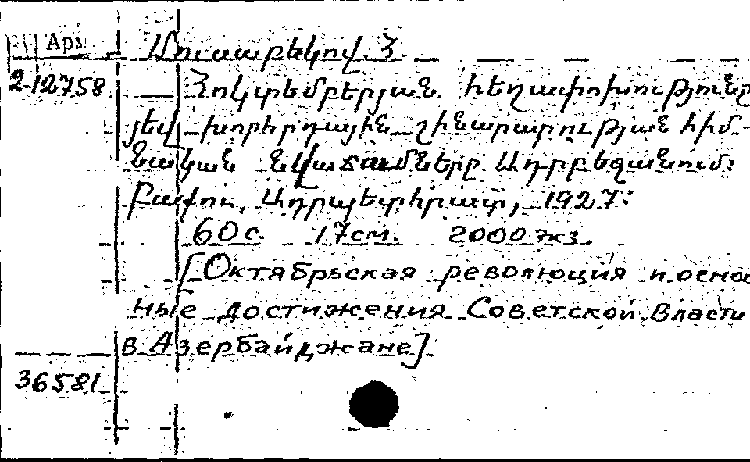 Арм Մուսաբեկով. Հ
2-12758 Հոկտեմբերյան հեղափոխությունը
յեվ խորհրդային շինարարության հիմ-
նական նվաճումները Ադրբեջանում:
Բաքու, Ադրպետհրատ, 1927:
60 с. 17 см. 2000 экз.
[Октябрьская революция и основ
ные достижения Советской Власти
в Азербайджане]
36581